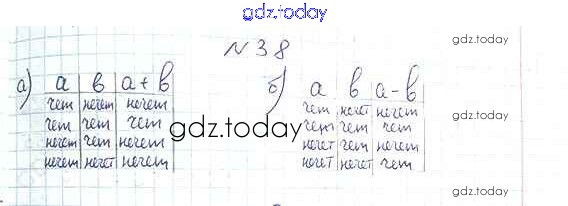 gdz.today
№38
gdz.today
а) а в а+в
чет нечет нечет
чет чет чет
нечет чет нечет
нечет нечет нечет
б) а в а-в
чет нечет нечет
чет чет чет
нечет чет нечет
нечет нечет чет
gdz.today
gdz.today